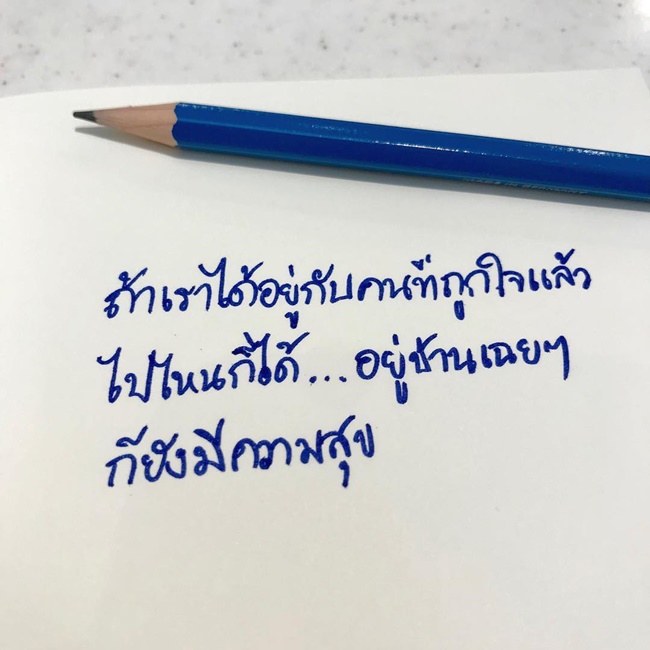 ถ้าเราได้อยู่กับคนที่ถูกใจแล้ว
ไปไหนก็ได้...อยู่บ้านเฉยๆ
ก็ยังมีความสุข